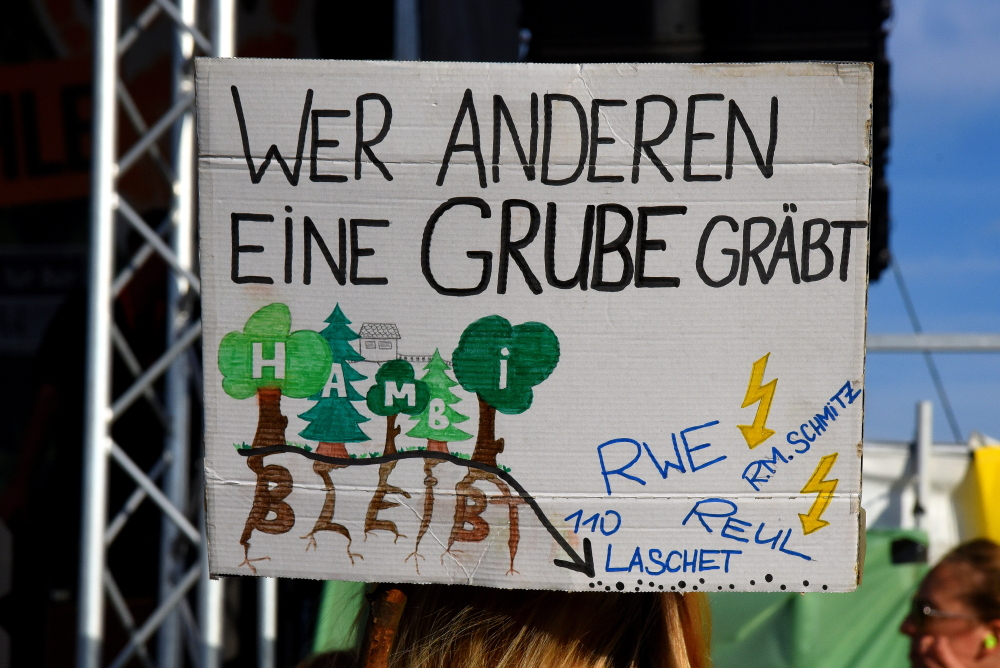 WER ANDEREN
EINE GRUBE GRÄBT
HAMBI
BLEIBT
RWE
R.M. SCHMITZ
110
REUL
LASCHET